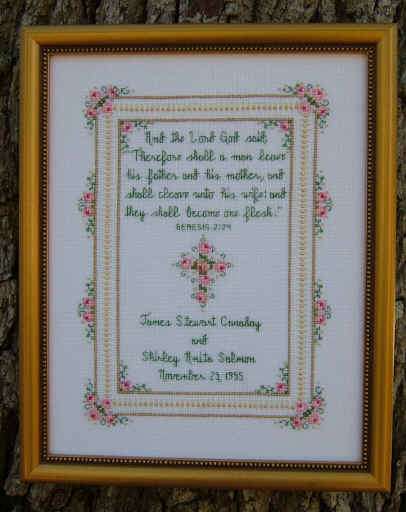 And the Lord God said,
"Therefore shall a man leave
his father and his mother, and
shall cleave unto his wife: and
they shall become one flesh."
GENESIS 2:24
James Stewart Canaday
and
Shirley Anita Salmon
November 23, 1955